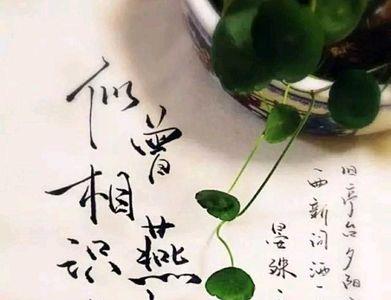 似曾相识燕
晏殊
曲新词酒一
旧亭台夕阳